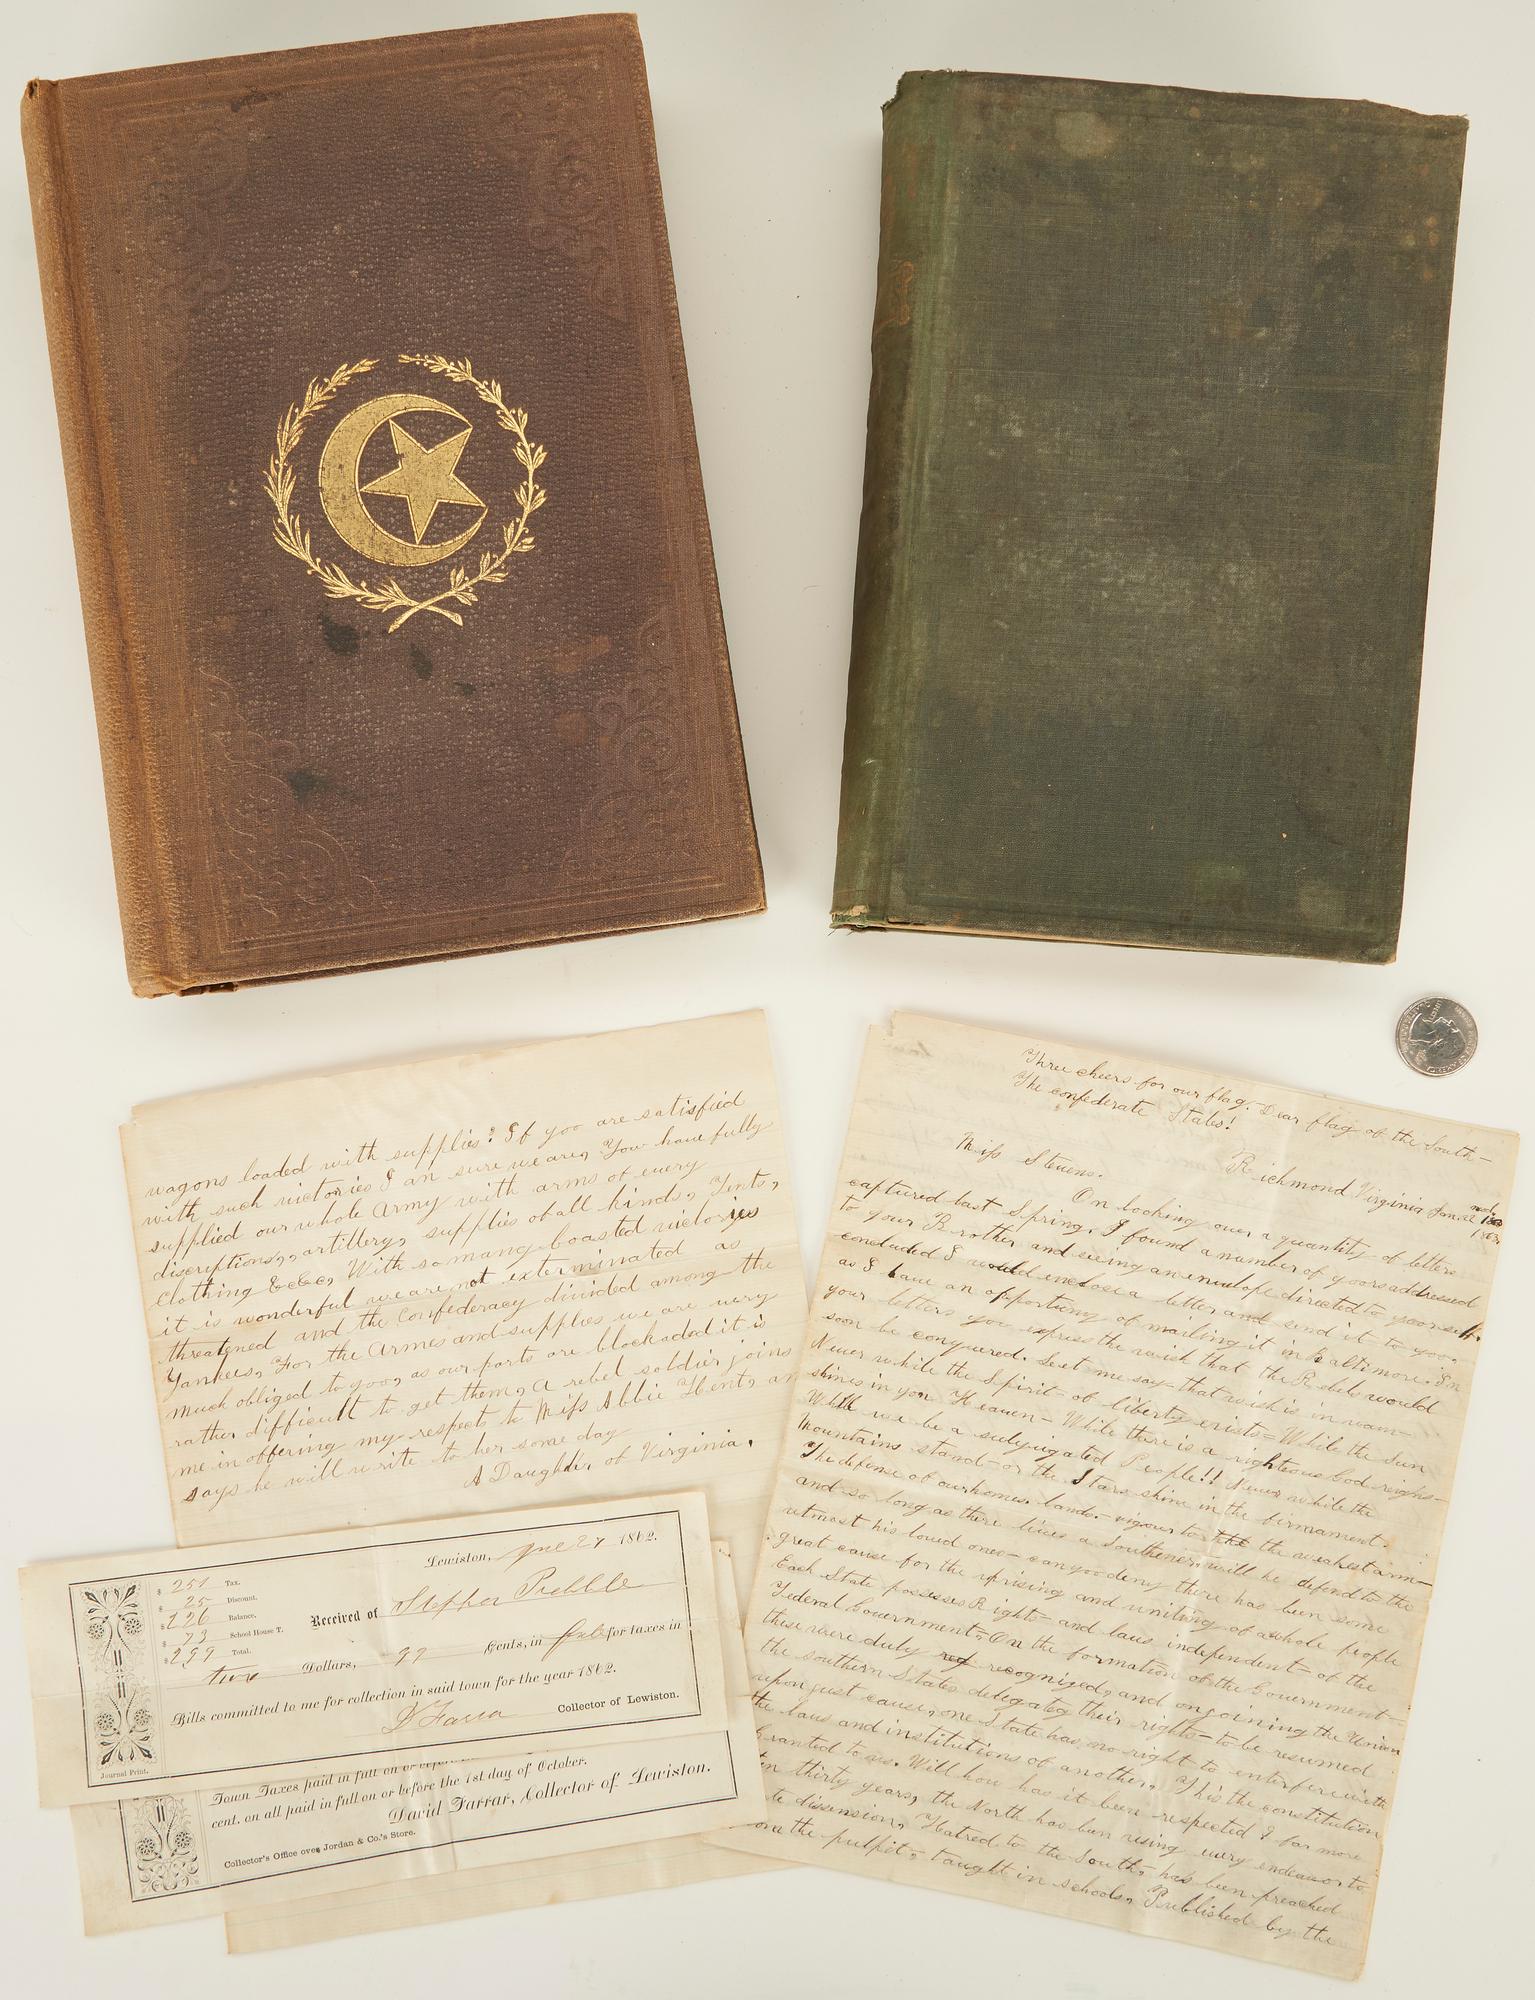 wagons loaded with supplies? If yoo are satisfied
with such victories I am sure we are, You have fully
supplied our whole Army with arms of every
discriptions,, artillery, supplies of all kinds, Tents,
Clothing &c&c, With so many boasted victories
it is wonderful we are not exterminated as
threatened and the Confederacy divided among the
Yankees, For the Armes and supplies we are very
much obliged to yoo, as our ports are blockaded it is
rather difficult to get them, A rebel soldier joins
me in offering my respects to Miss Abbie Hent, an
says he will write to her some day
A Daughter of Virginia.
Three cheers for our flag. Dear flag of the South-
The confederate States!
Richmond Virginia Jan. 22
Miss Stevens.
On looking over a quantity of letters
captured last Spring, I found a number of yoors addressed
to your Brother and seeing an envelope directed to yoorself
concluded I would enclose a letter and send it to yoo,
as I have an opportuny of mailing it in Baltimore. In
your letters you express the wish that the Rebels would
soon be conquered. Let me say that wish is in vain-
Never while the Spirit of liberty exists= While the Sun
shines in yon Heaven- While there is a righteous God reighs-
Will we be a subjugated People!! Never while the
Mountains stand- or the Stars shine in the firmament.
The defense of our homes. lands.- vigour to the weakest arm-
and so long as there lives a Southener, will he defend to the
utmost his loved ones- can yoo deny there has been some
great cause for the uprising and uniting of a whole people
Each State possesses Rights- and laws independent of the
Federal Government. On the formation of the Government-
these were duly recognized, and on joining the Union
the southern States delegated their rights- to be resumed
upon just cause, one State has no right to enterfere with
the laws and institutions of another, This the constitution
Granted to us. Will how has it been respected? for more
thirty years, the North has been using every endeavor to
dissension, Hatred to the South, has been preached
the pulpit, taught in schools, Published by the
Lewiston, 27 1862.
$ 251 Tax.
$ 25 Discount.
$ 226 Balance.
$ 73 School House T.
$ 299 Total.
Received of Stephen Prebble
two Dollars, 99 Cents, in full for taxes in
Bills committed to me for collection in said town for the year 1862.
D Farrar Collector of Lewiston.
Journal Print.
Town Taxes paid in full on or before
cent. on all paid in full on or before the 1st day of October.
David Farrar, Collector of Lewiston.
Collector's Office over Jordan & Co.'s Store.